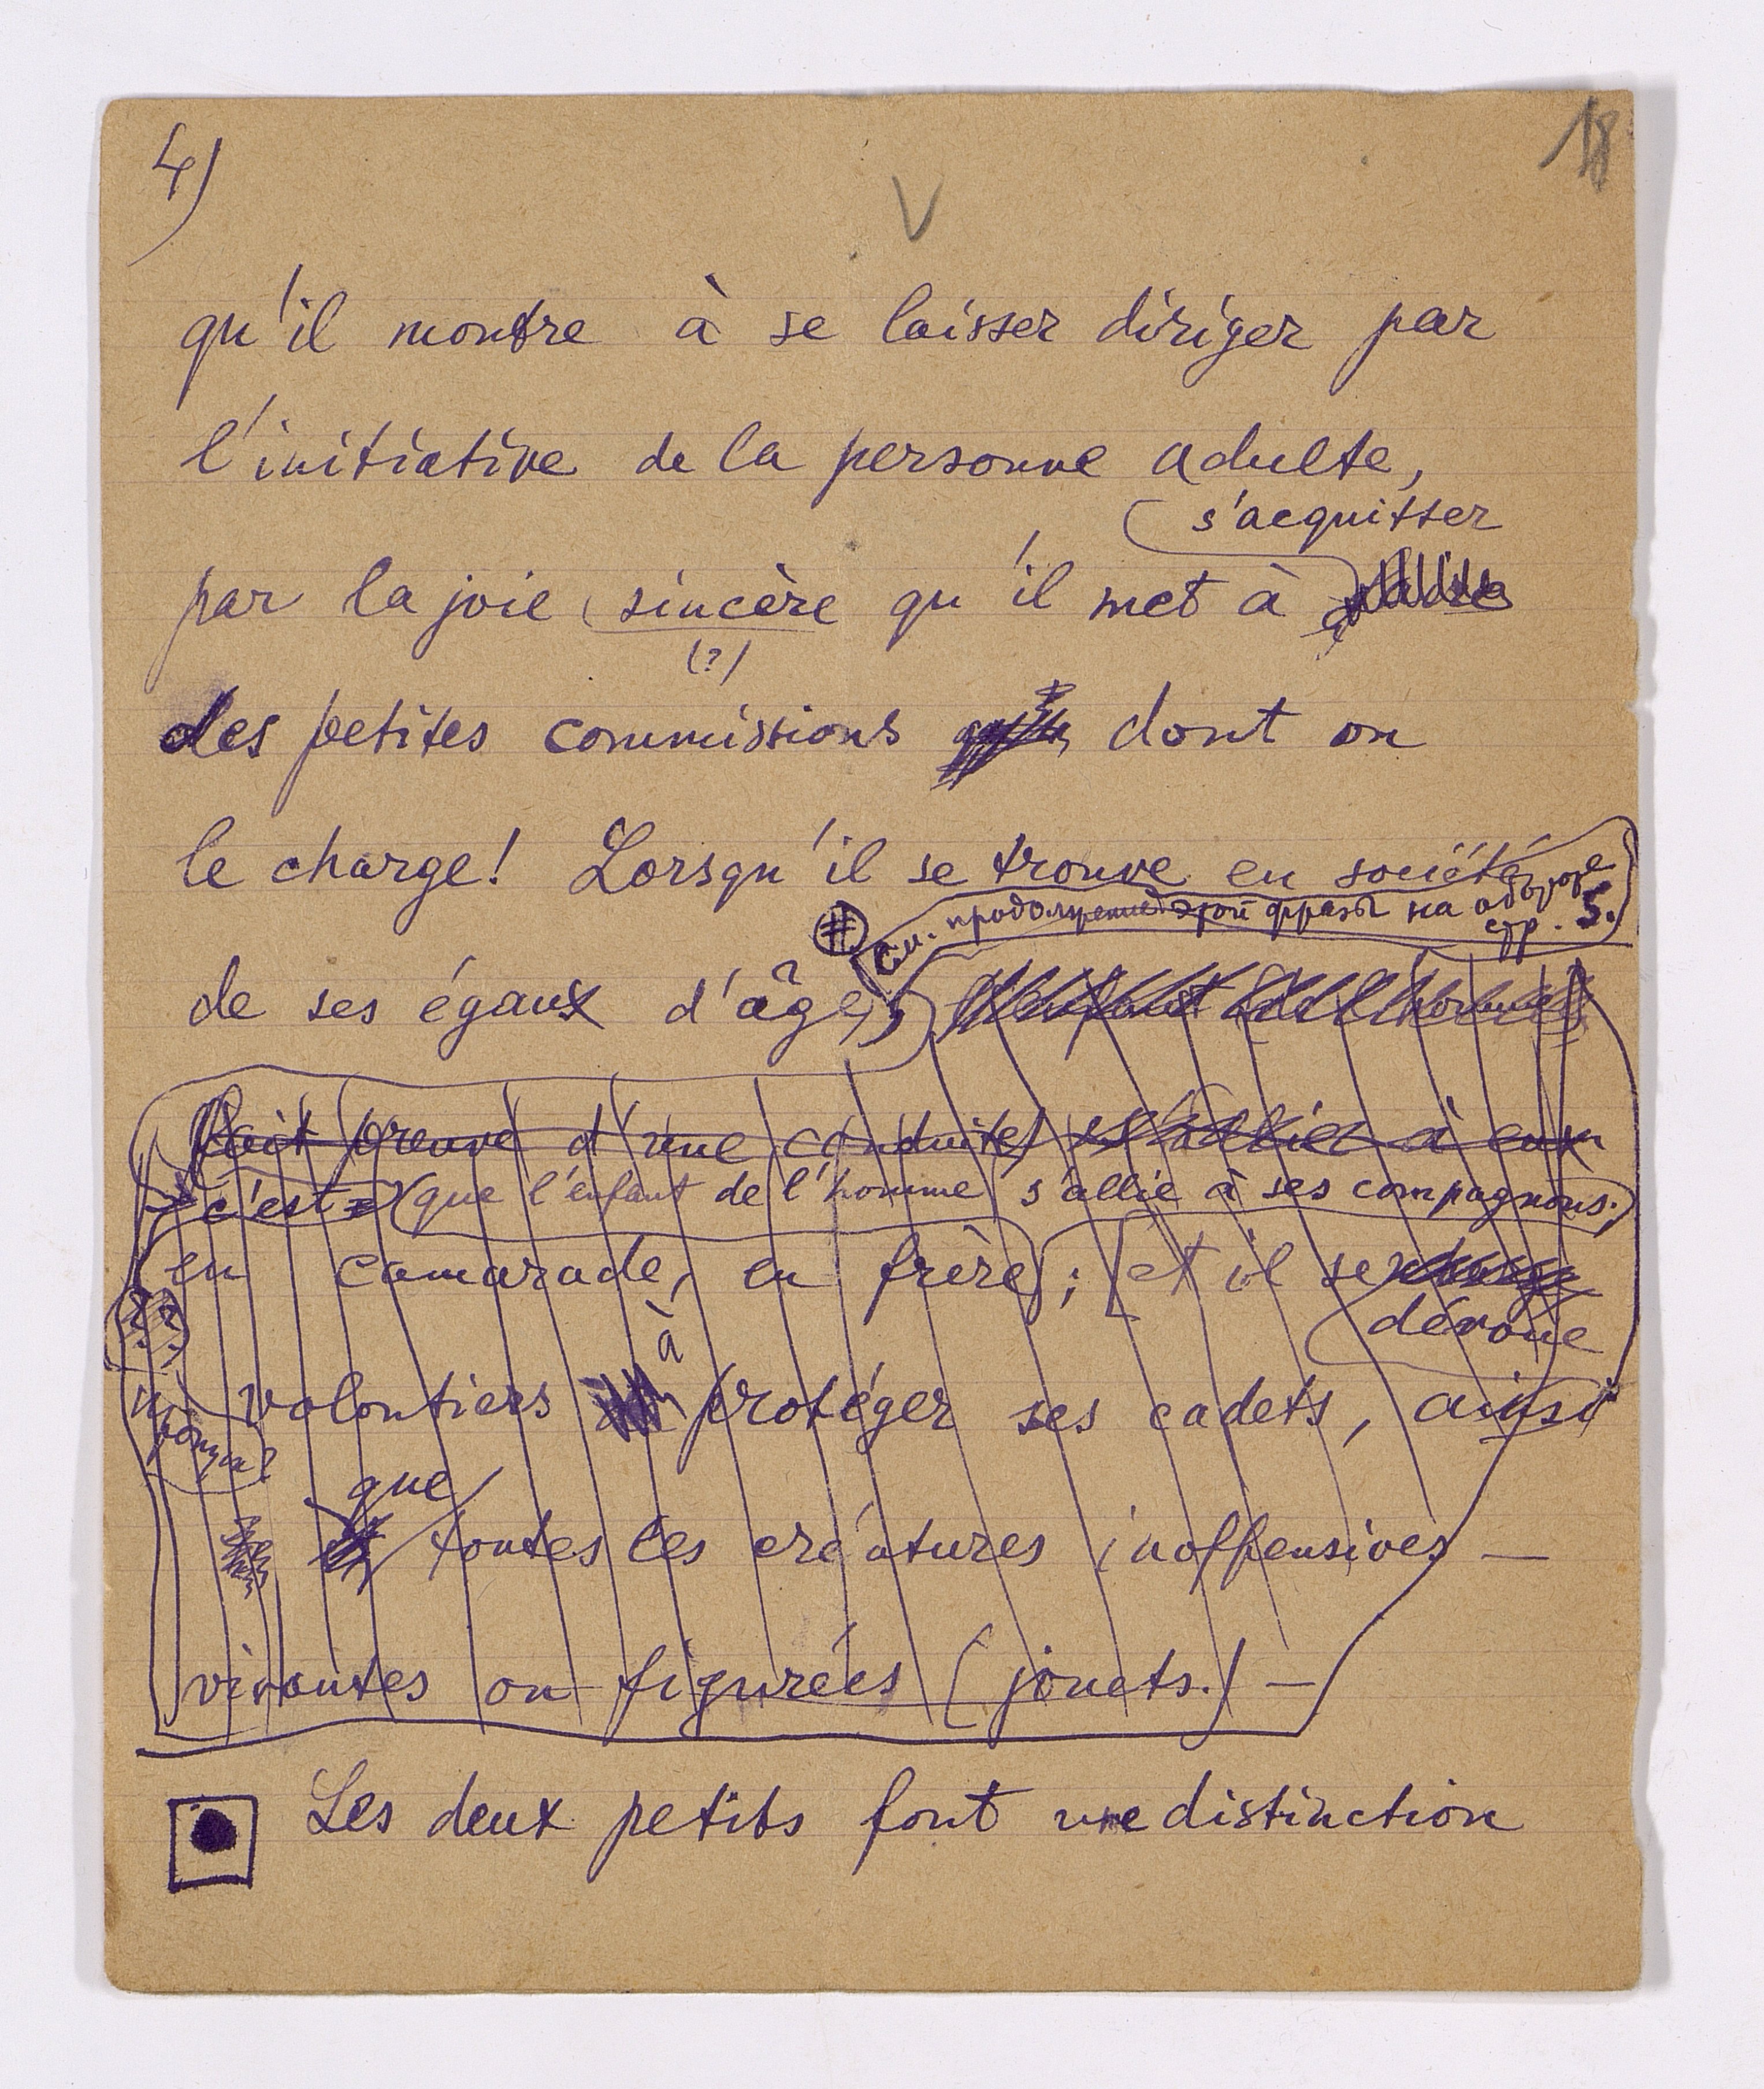 4)
18
V
qu'il montre à se laisser diriger par
l'initiative de la personne adulte,
s'acquitter
par la joie (sincère qu'il met à
(?)
des petites commissions dont on
le charge! Lorsqu'il se trouve en société
# см. продолжение этой фразы на обороте
стр. 5.
de ses égaux d'âge,
fait preuve d'une conduite s'allier à eux
c'est (que l'enfant de l'homme s'allie à ses compagnons.)
en camarade, en frère; [et il se
dévoue
à
volontiers protéger ses cadets, ainsi
que
toutes les créatures inoffensives —
vivantes ou figurées (jouets.) —
Les deux petits font une distinction